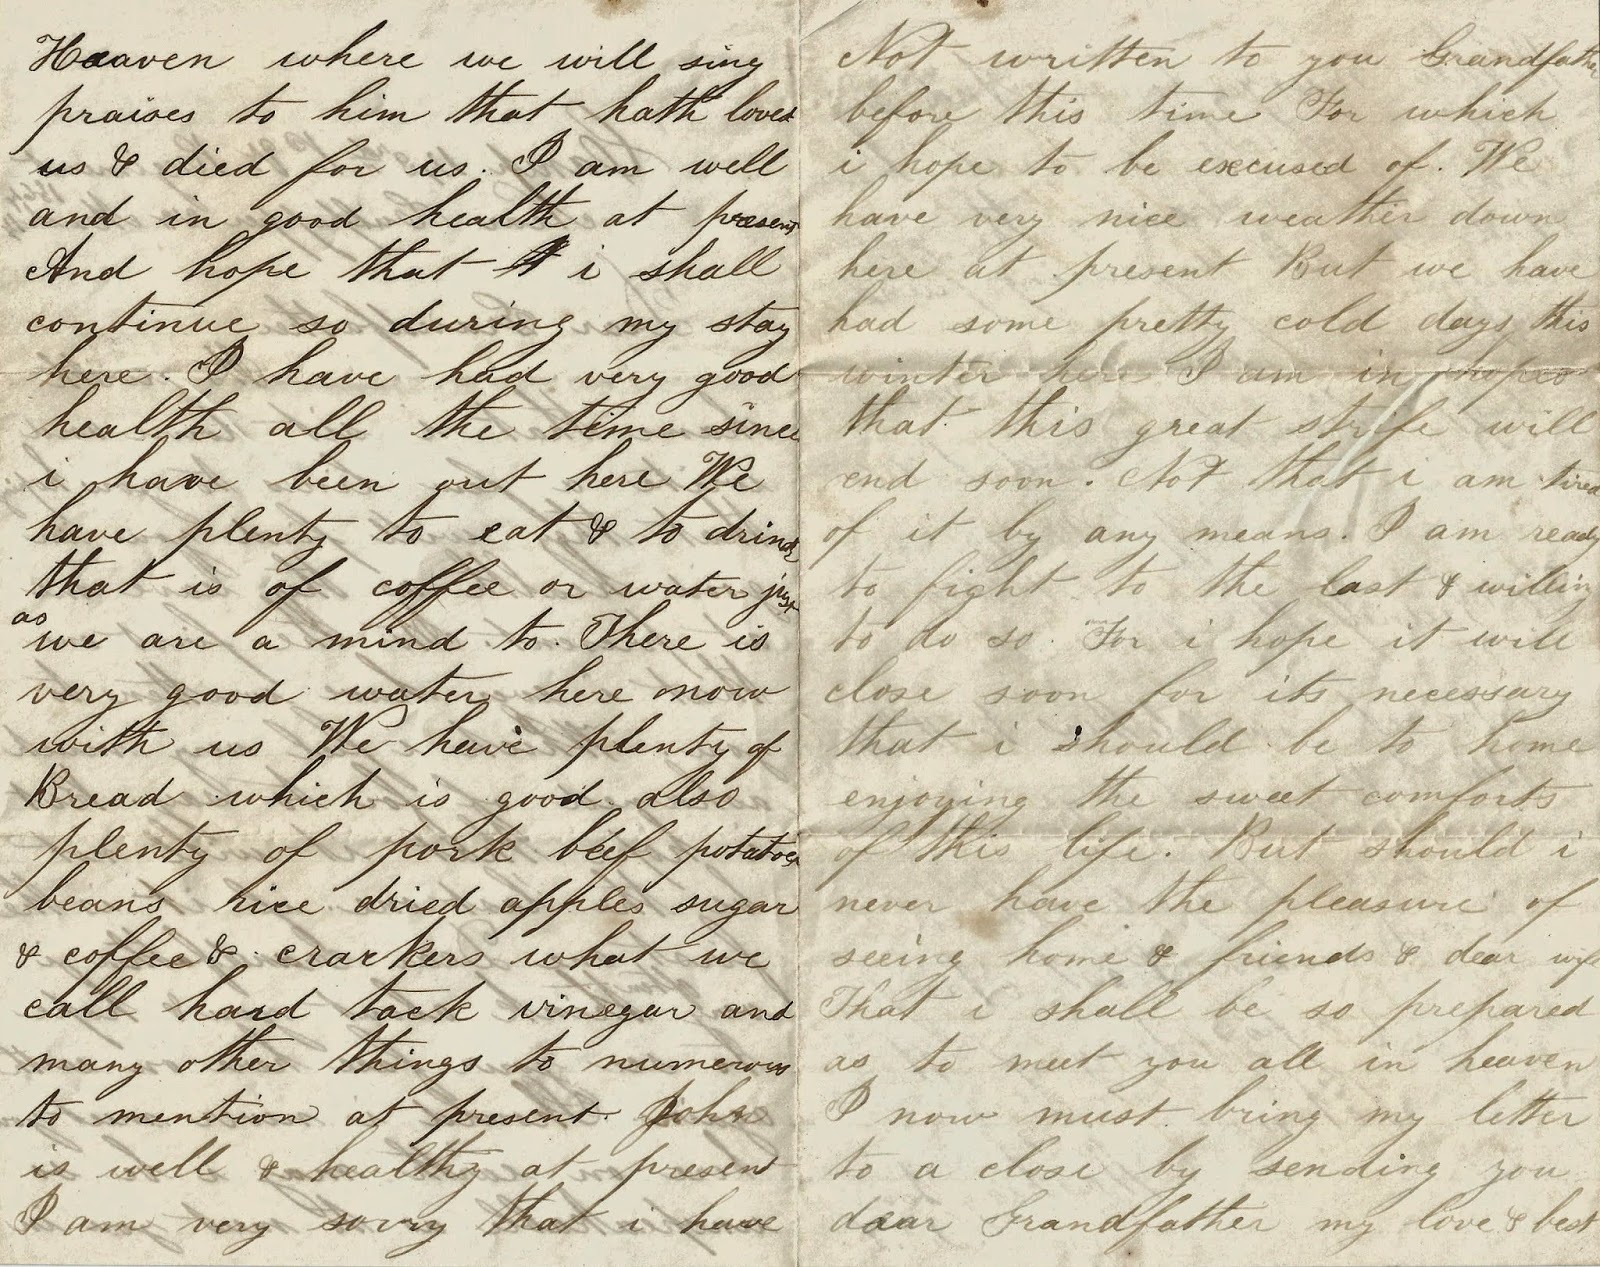 Heaven where we will sing
praises to him that hath loved
us & died for us. I am well
and in good health at present
And hope that i shall
continue so during my stay
here. I have had very good
health all the time since
i have been out here We
have plenty to eat & to drink
that is of coffee or water just
as
we are a mind to. There is
very good water here now
with us We have plenty of
Bread which is good also
plenty of pork beef potatoes
beans rice dried apples sugar
& coffee & crackers what we
call hard tack vinegar and
many other things to numerous
to mention at present. John
is well & healthy at present
I am very sorry that i have
Not written to you Grandfather
before this time For which
i hope to be excused of. We
have very nice weather down
here at present But we have
had some pretty cold days this
winter here I am in hopes
that this great strife will
end soon. Not that i am tired
of it by any means. I am ready
to fight to the last & willing
to do so. For i hope it will
close soon for its necessary
that i should be to home
enjoying the sweet comforts
of this life. But should i
never have the pleasure of
seeing home & friends & dear wife
That i shall be so prepared
as to meet you all in heaven
I now must bring my letter
to a close by sending you
dear Grandfather my love & best